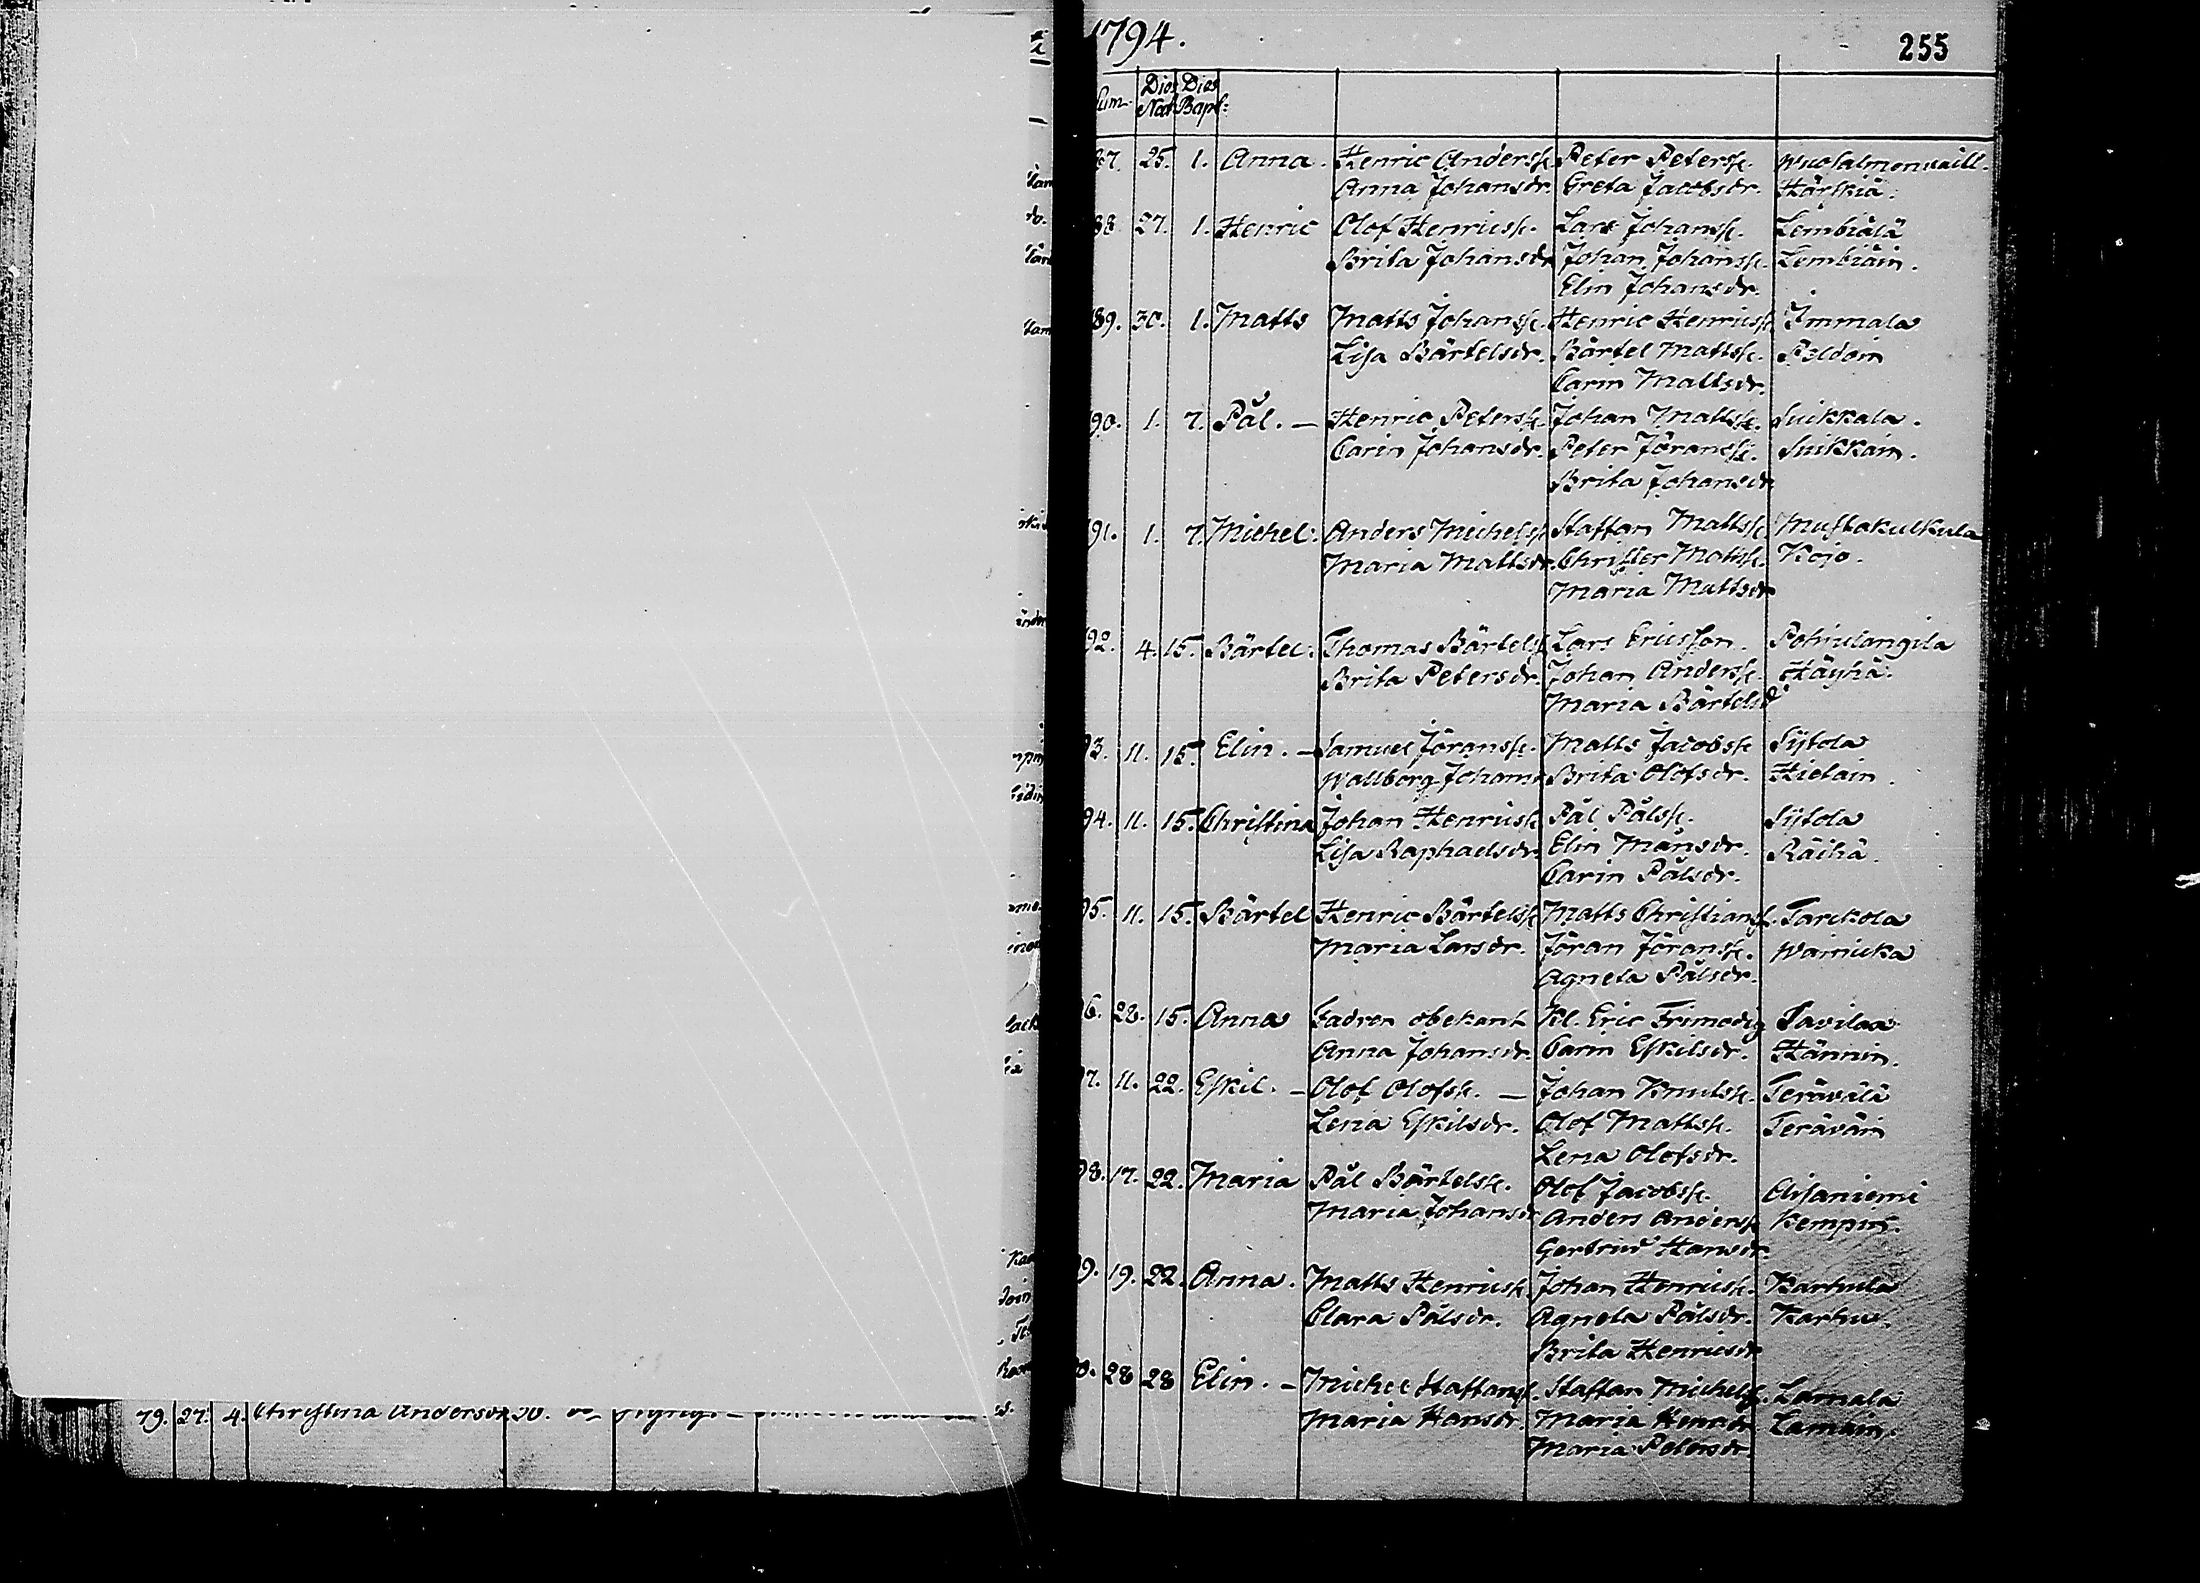 1794.
255
Num. Dies Nat. Dies Bapt:
87. 25. 1. Anna. Henric Anderss. Peter Peterss. Wuosalmenvaill.
Anna Johansdr. Greta Jacobsdr. Härkiä.
88 27. 1. Henric Olof Henricss. Lars Johanss. Lembiälä
Brita Johansdr Johan Johanss. Lembiäin.
Elin Johansdr.
89. 30. 1. Matts Matts Johanss. Henric Henricss. Immala
Lisa Bärtelsdr. Bärtel Mattss. Peldoin
Carin Mattsdr.
90. 1. 7. Pål. — Henric Peterss. Johan Mattss. Suikkala.
Carin Johansdr. Peter Jöranss. Suikkain.
Brita Johansdr
91. 1. 7. Michel. Anders Michelss. Staffan Mattss. Mustakulkula
Maria Mattsdr. Christer Mattss. Kojo.
Maria Mattsdr
92. 4. 15. Bärtel. Thomas Bärtelss. Lars Ericsson. Pohjulangila
Brita Petersdr. Johan Anderss. Häyhä.
Maria Bärtelsd
93. 11. 15. Elin. — Samuel Jöranss. Matts Jacobss Sijtola
Wallborg Johans Brita Olofsdr. Hietain.
94. 11. 15. Christina Johan Henricss. Pål Pålss. Sijtola
Lisa Raphaelsdr. Elin Månsdr. Räihä.
Carin Pålsdr.
95. 11. 15. Bärtel Henric Bärtelss. Matts Christianss. Tarckola
Maria Larsdr. Jöran Jöranss. Wainicka
Agneta Pålsdr.
96. 28. 15. Anna Fadren obekant Kl. Eric Frimodig Savilax
Anna Johansdr. Carin Eskilsdr. Hännin.
97. 11. 22. Eskil. — Olof Olofss. — Johan Knutss. Teräwälä
Lena Eskilsdr. Olof Mattss. Teräväin
Lena Olofsdr.
98. 17. 22. Maria Pål Bärtelss. Olof Jacobss. Elisaniemi
Maria Johansdr Anders Anderss. Kempin.
Gertrud Hansdr.
9. 19. 22. Anna. Matts Henricss. Johan Henricss. Karhula
Clara Pålsdr. Agneta Pålsdr. Karhu.
Brita Henricsdr
0. 28 28 Elin. — Michel Staffanss. Staffan Michelss. Lamala
Maria Hansdr. Maria Henrdr Lamain.
Maria Petersdr.
79. 27. 4. Christina Anders